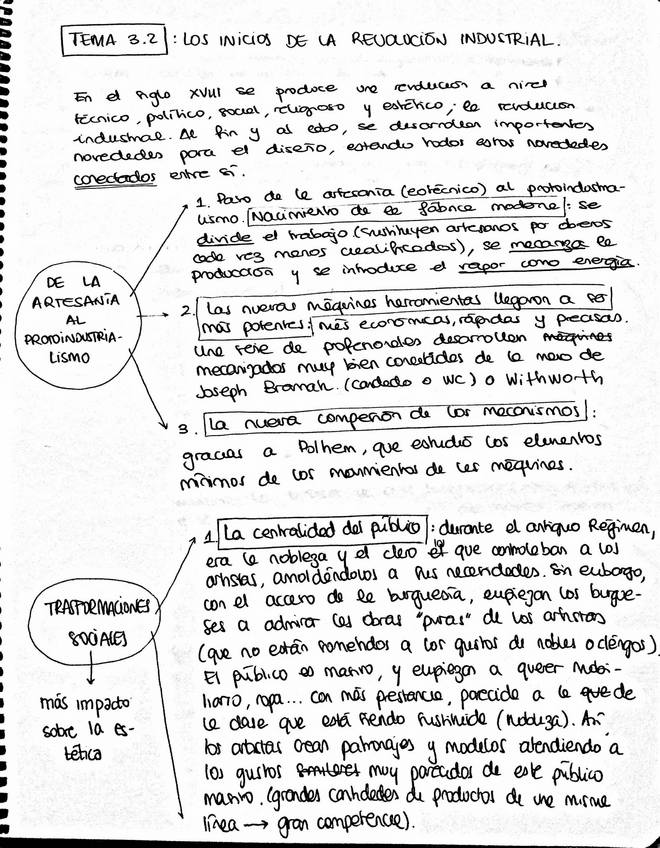 TEMA 3.2 : LOS INICIOS DE LA REVOLUCIÓN INDUSTRIAL.
En el siglo XVIII se produce una revolución a nivel
técnico, político, social, religioso y estético; la revolución
industrial. Al fin y al cabo, se desarrollan importantes
novedades para el diseño, estando todas estas novedades
conectadas entre sí.
DE LA
ARTESANÍA
AL
PROTOINDUSTRIA-
LISMO
1. Paso de la artesanía (eotécnico) al protoindustria-
lismo. Nacimiento de la fábrica moderna: se
divide el trabajo (sustituyen artesanos por obreros
cada vez menos cualificados), se mecaniza la
producción y se introduce el vapor como energía.
2. Las nuevas máquinas herramientas llegaron a ser
más potentes: más económicas, rápidas y precisas.
Una serie de profesionales desarrollan máquinas
mecanizados muy bien conectadas de la mano de
Joseph Bramah. (candado o WC) o Withworth
3. La nueva compensión de los mecanismos:
gracias a Polhem, que estudió los elementos
mínimos de los movimientos de las máquinas.
TRASFORMACIONES
SOCIALES
más impacto
sobre la es-
tética
1. La centralidad del público: durante el antiguo Régimen,
era la nobleza y el clero los que controlaban a los
artistas, amoldándolos a sus necesidades. Sin embargo,
con el acceso de la burguesía, empiezan los burgue-
ses a admirar las obras "puras" de los artistas
(que no están sometidos a los gustos de nobles o clérigos)
El público es masivo, y empiezan a querer mobi-
liario, ropa... con más prestancia, parecida a la que de
la clase que está siendo sustituida (nobleza). Así
los artistas crean patronajes y modelos atendiendo a
los gustos similares muy parecidos de este público
masivo. (grandes cantidades de productos de una misma
línea → gran competencia).